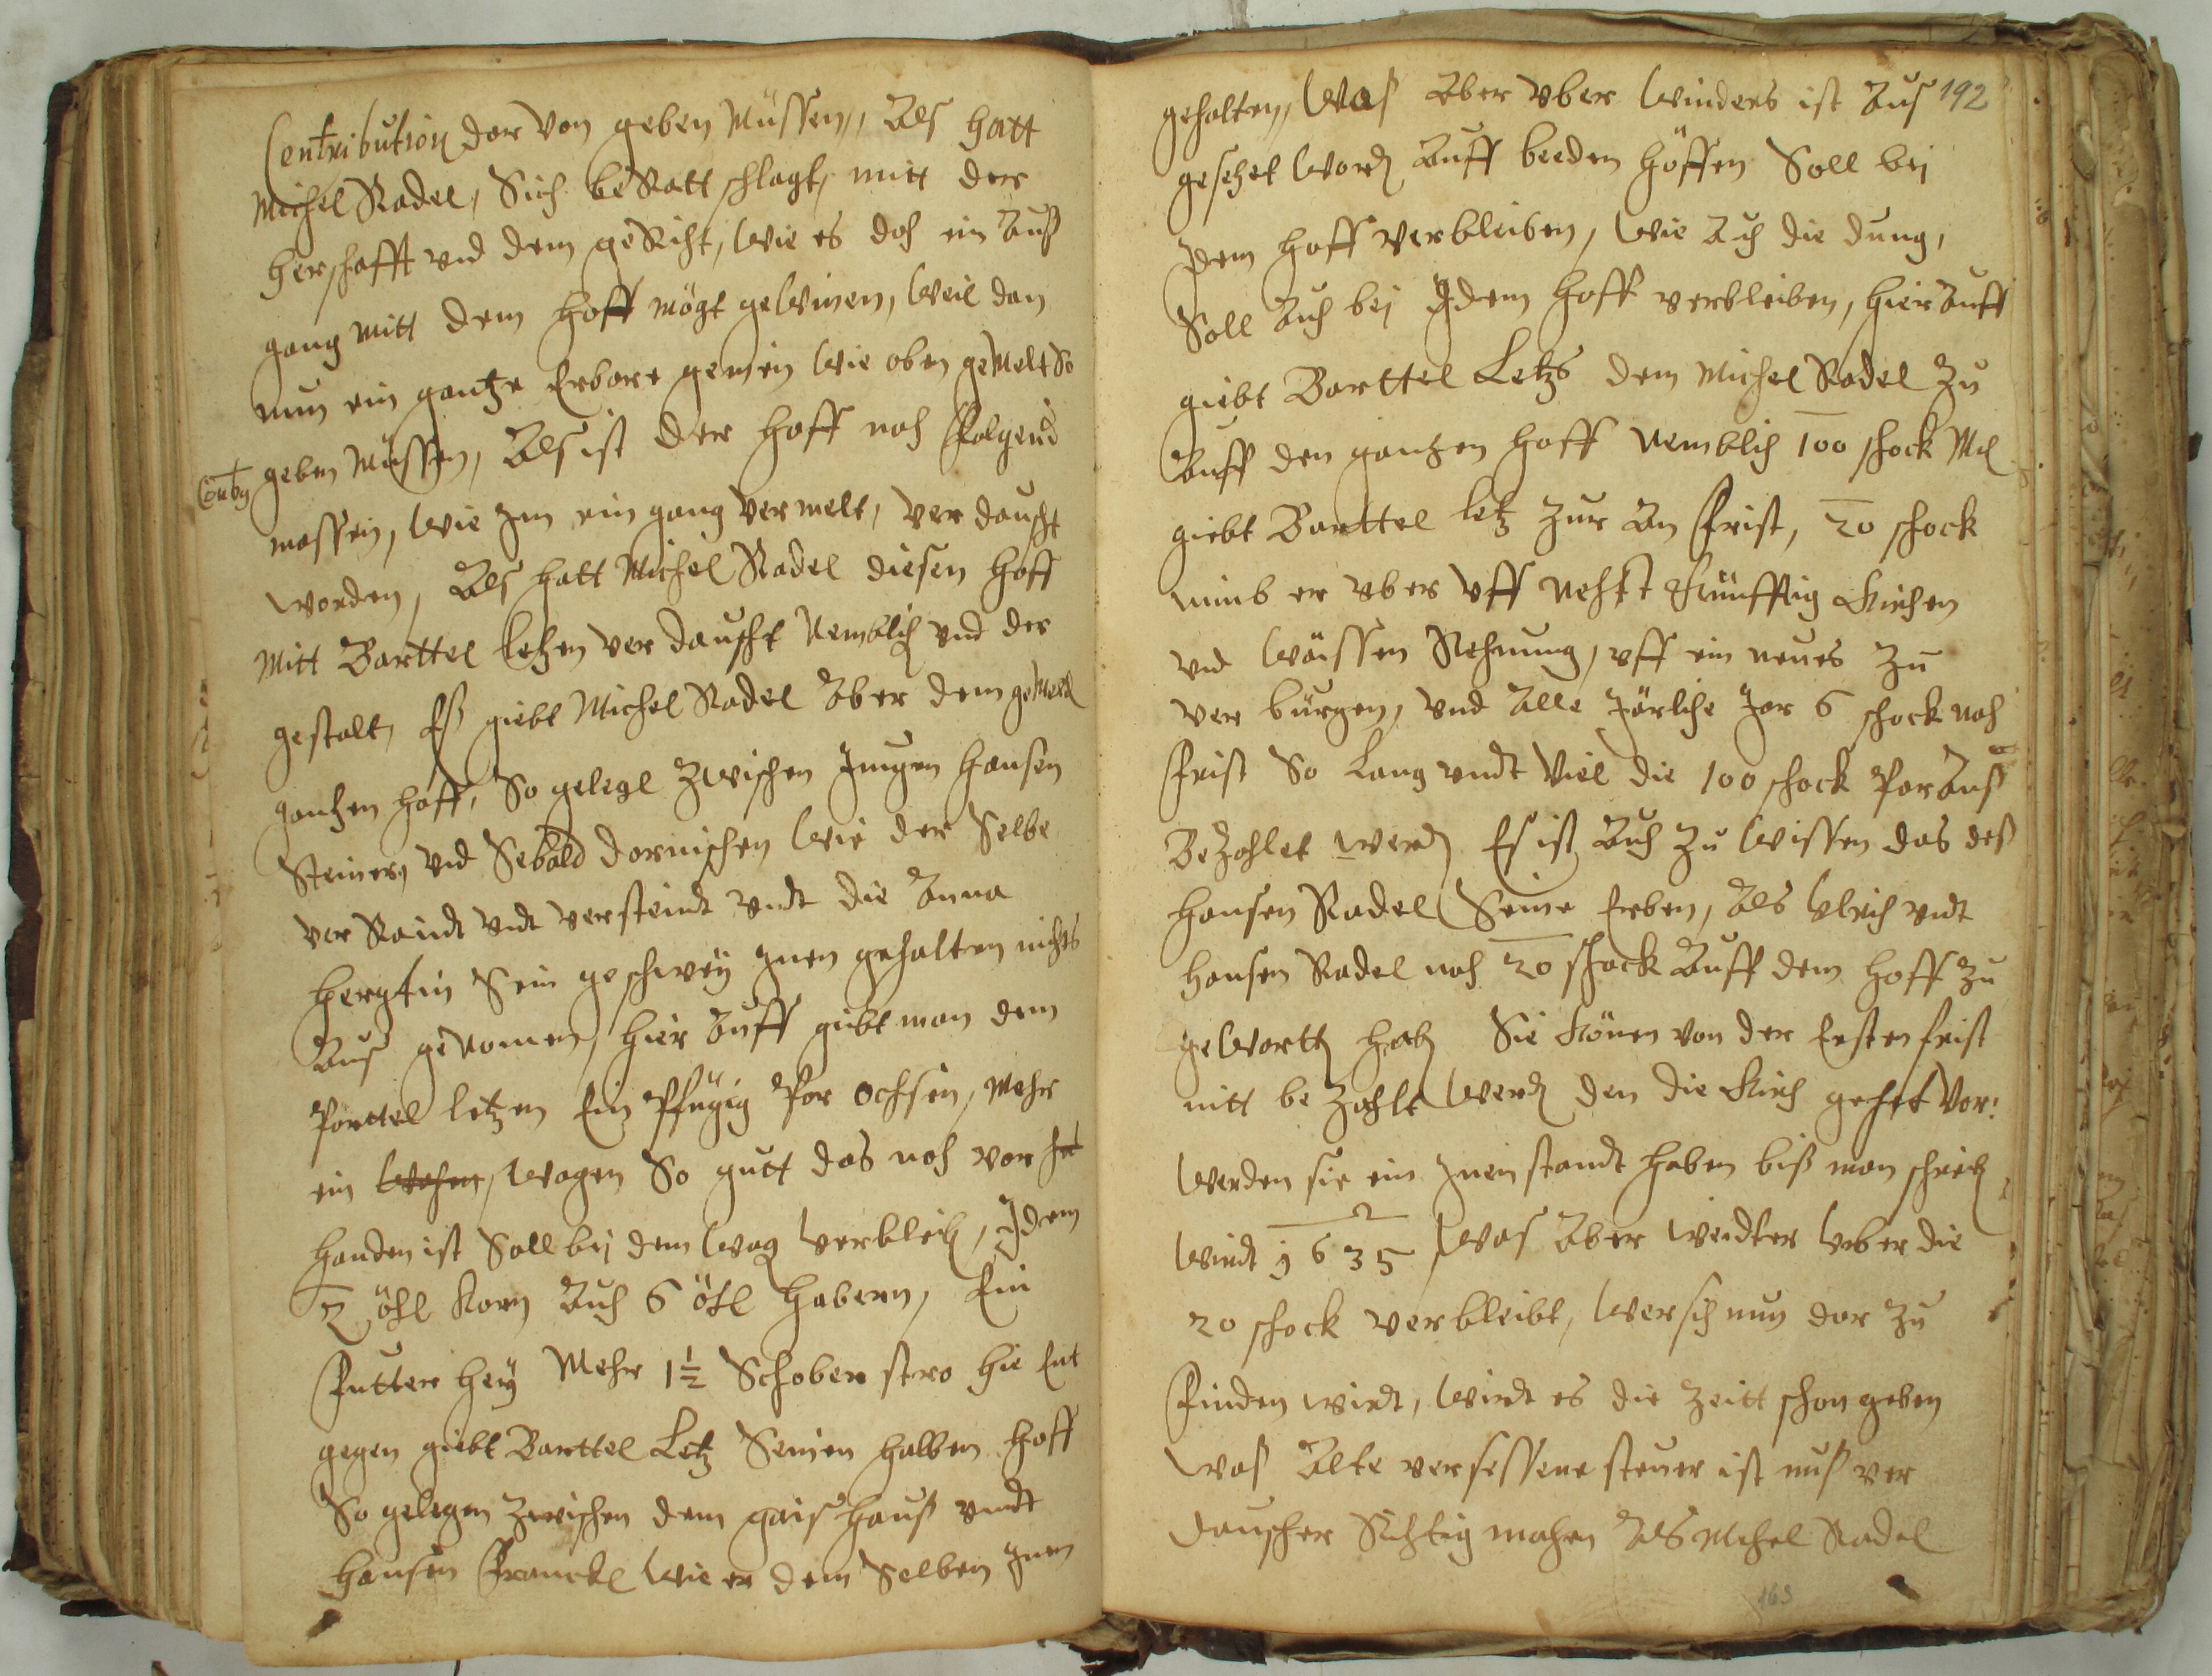 Contribution dar von geben Müssen, Als hatt
Michel Radel, Sich beRattschlagt, mitt der
herschafft vnd dem geRicht, wie es doch ein Auß
gang mitt dem hoff möcht gewinen, weil dan
nun ein gantze Erbare gemein wie oben gemelt So
geben Müssen, Als ist der hoff noch folgend
massen, wie Im ein gang vermelt, ver dauscht
worden, Als hatt Michel Radel diesen hoff
Mitt Barttel letzen ver dauscht Nemblich vnd der
gestalt, Eß giebt Michel Radel Aber dem gemelt
gantzen hoff, So gelegt zwischen Jungen hansen
Steiners vnd Sebald dornischen wie der Selbe
ver Raindt vndt versteindt vndt die Anna
hergtin Sein geschwey Inen gehalten nichts
Aus genomen, hier Auff giebt man dem
Parttel letzen Ein Pflügig Par Ochsen, Mehr
ein wagen So gutt das noch vor
handen ist Soll bej dem wag verbleib, Idem
2 ötl Korn Auch 6 ötl habern, Ein
Futter hey Mehr 1½ Schober stro hie Ent
gegen giebt Barttel Letz Seinen halben hoff
So gelegen zwischen dem gais hauß vndt
hansen Franckl wie er dem Selben Inen
192
gehalten, was Aber vber winders ist Aus
gesehet word Auff beeden höffen Soll bej
dem hoff verbleiben, wie Auch die dung,
Soll Auch bej Idem hoff verbleiben, hier Auff
giebt Barttel Letzs dem Michel Radel zu
Auff den gantzen hoff Nemblich 100 schock
giebt Barttel letz zur An frist, 20 schock
nimb er vber vff Nehst Künfftig Kirchen
vnd wäissen Rechnung, vff ein neues zu
ver bürgen, vnd Alle Järliche Jar 6 schock nach
frist So Lang vndt Viel die 100 schock Par Aus
Bezahlet werd Es ist Auch zu wissen das deß
hansen Radel Seine Erben, Als Ulrich vndt
hansen Radel noch 20 schock Auff dem hoff zu
gewartt hab Sie Könen von der Ersten frist
nitt bezahlt werd den die Kirch gehet Vor:
werden sie ein Inen standt haben biß man schreib
wirdt 1635 was Aber weidter vber die
20 schock verbleibt, wer sich nun dar zu
finden wirdt, wirdt es die zeitt schon geben
was Alte versessene steuer ist muß ver
dauscher Richtig machen Als Michel Radel
163